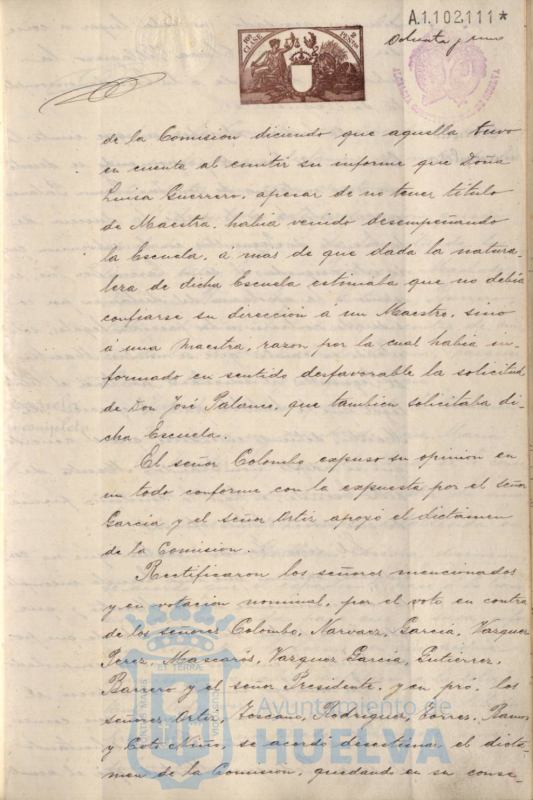 A.1.102.111*
Ochenta y uno
CLASE
PESETAS
de la Comision diciendo que aquella tuvo
en cuenta al emitir su informe que Doña
Luisa Guerrero, apesar de no tener título
de Maestra, habia venido desempeñando
la Escuela, á mas de que dada la natura-
leza de dicha Escuela estimaba que no debia
confiarse su dirección á un Maestro, sino
á una maestra, razon por la cual habia in-
formado en sentido desfavorable la solicitud
de Don José Palanco, que tambien solicitaba di-
cha Escuela.
El señor Colombo expuso su opinion en
un todo conforme con la expuesta por el señor
García y el señor Ortiz apoyó el dictámen
de la Comision.
Rectificaron los señores mencionados
y en votacion nominal, por el voto en contra
de los señores Colombo, Narvaez, García, Vazquez
Perez, Mascarós, Vazquez García, Gutierrez,
Barrero y el señor Presidente, y en pró, los
señores Ortiz, Toscano, Rodriguez, Torres, Ramos
y Coto Mino, se acordó desestimar el dictá-
men de la Comision, quedando en su conse-
Ayuntamiento de
HUELVA